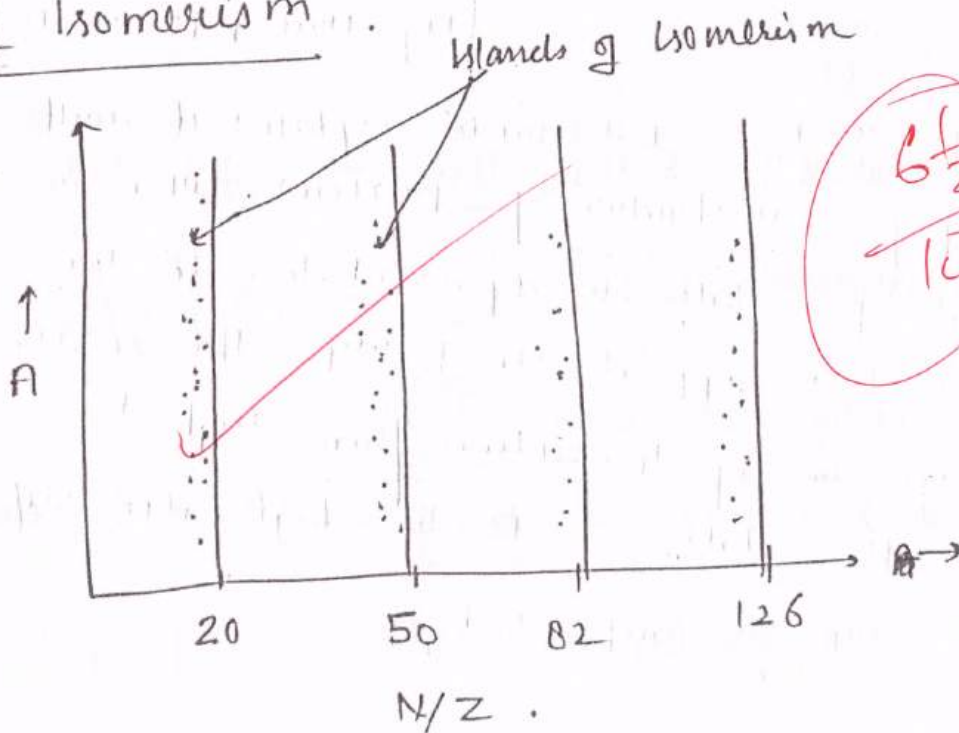 Isomerism.
Islands of isomerism
6 1/2
A
20 50 82 126
N/Z.